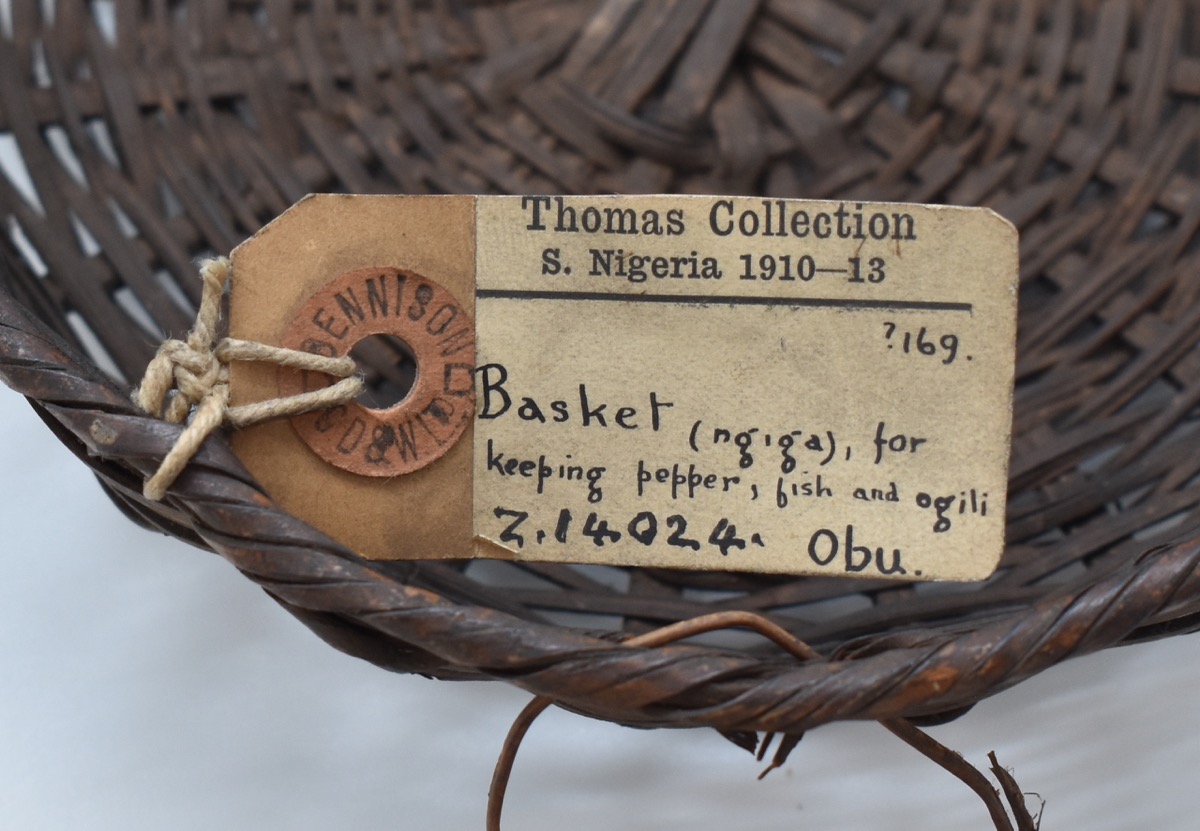 Thomas Collection
S. Nigeria 1910—13
?169.
Basket (ngiga), for
keeping pepper, fish and ogili
Z.14024. Obu.
DENNISON